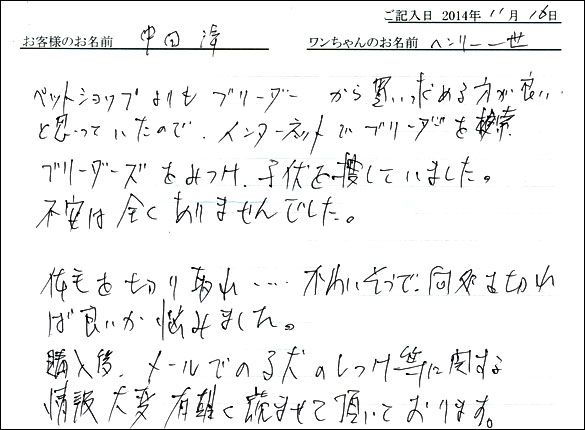 ご記入日 2014年 11月 16日
お客様のお名前 中田 淳 ワンちゃんのお名前 ヘンリー一世
ペットショップよりも ブリーダーから買い求める方が良い
と思っていたので、インターネットでブリーダーを検索
ブリーダーズをみつけ、子犬を捜していました。
不安は全くありませんでした。
体毛を切り取れ… かわいそうで、何処を切れ
ば良いか悩みました。
購入後、メールでの子犬のしつけ等に関する
情報 大変 有難く読ませて頂いております。